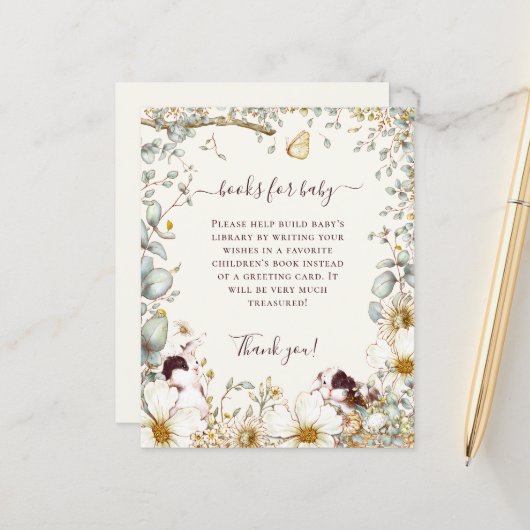 books for baby
Please help build baby's
library by writing your
wishes in a favorite
children's book instead
of a greeting card. It
will be very much
treasured!
Thank you!